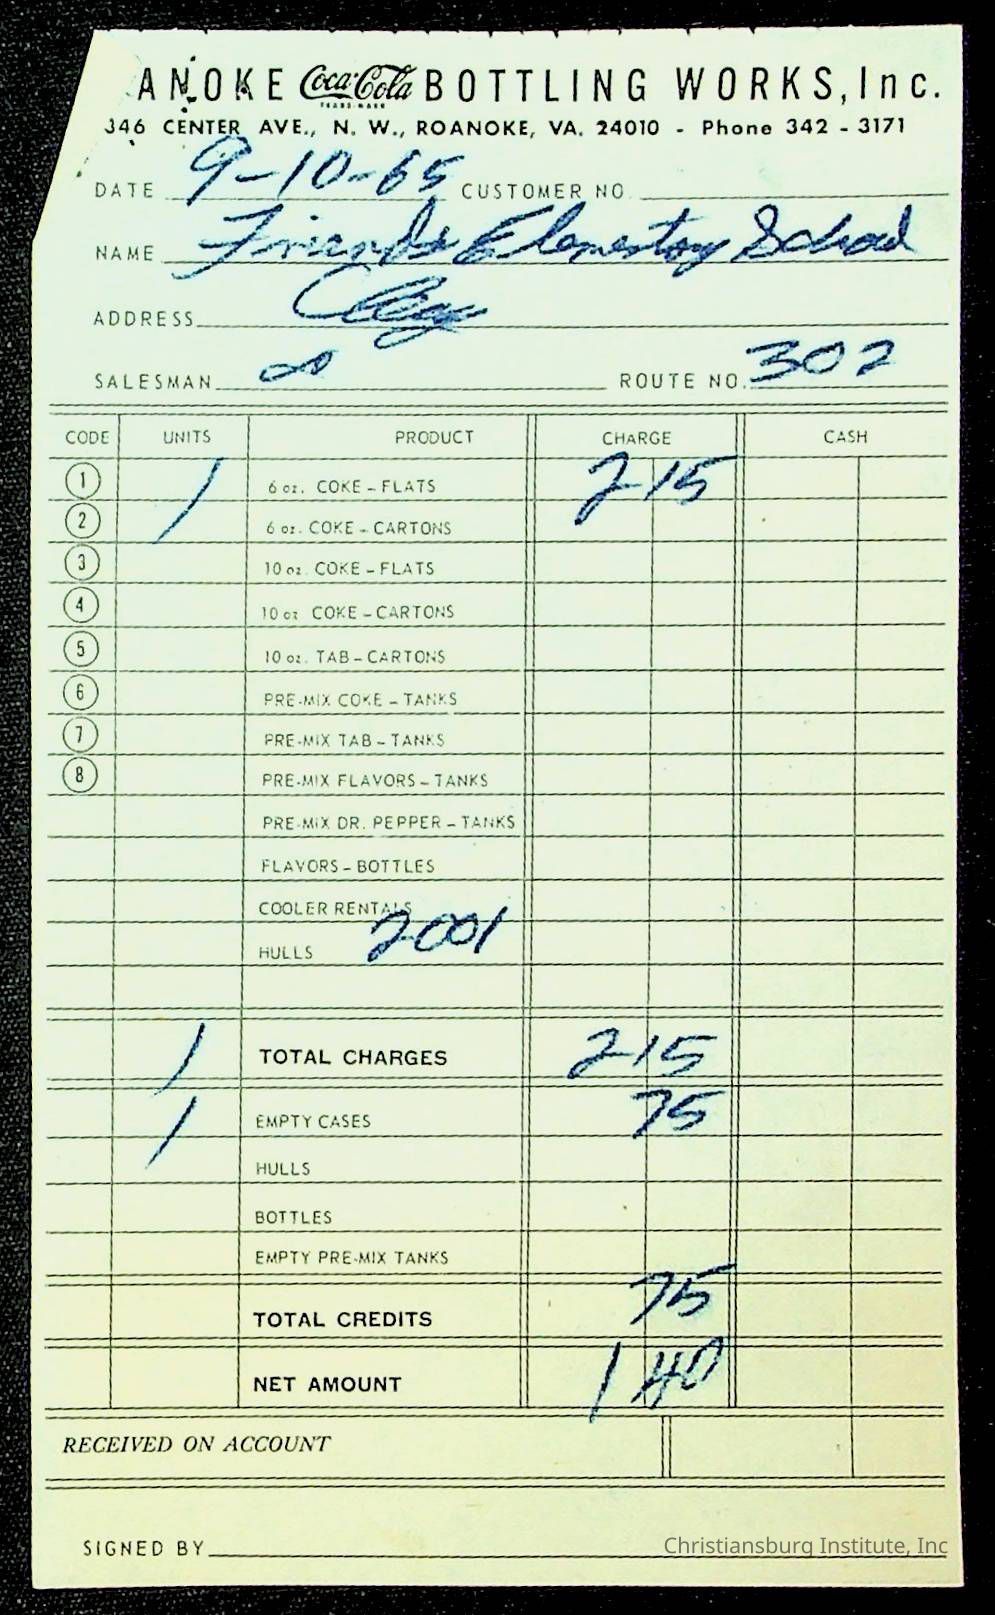 ANOKE Coca-Cola BOTTLING WORKS, Inc.
TRADE-MARK
346 CENTER AVE., N. W., ROANOKE, VA. 24010 - Phone 342 - 3171
DATE 9-10-65 CUSTOMER NO.
NAME Friends Elementary School
ADDRESS
SALESMAN ROUTE NO. 302
CODE UNITS PRODUCT CHARGE CASH
1 1 6 oz. COKE - FLATS 2 15
2 6 oz. COKE - CARTONS
3 10 oz. COKE - FLATS
4 10 oz COKE - CARTONS
5 10 oz. TAB - CARTONS
6 PRE-MIX COKE - TANKS
7 PRE-MIX TAB - TANKS
8 PRE-MIX FLAVORS - TANKS
PRE-MIX DR. PEPPER - TANKS
FLAVORS - BOTTLES
COOLER RENTALS
HULLS 2001
1 TOTAL CHARGES 2 15
1 EMPTY CASES 75
HULLS
BOTTLES
EMPTY PRE-MIX TANKS
TOTAL CREDITS 75
NET AMOUNT 1 40
RECEIVED ON ACCOUNT
SIGNED BY
Christiansburg Institute, Inc